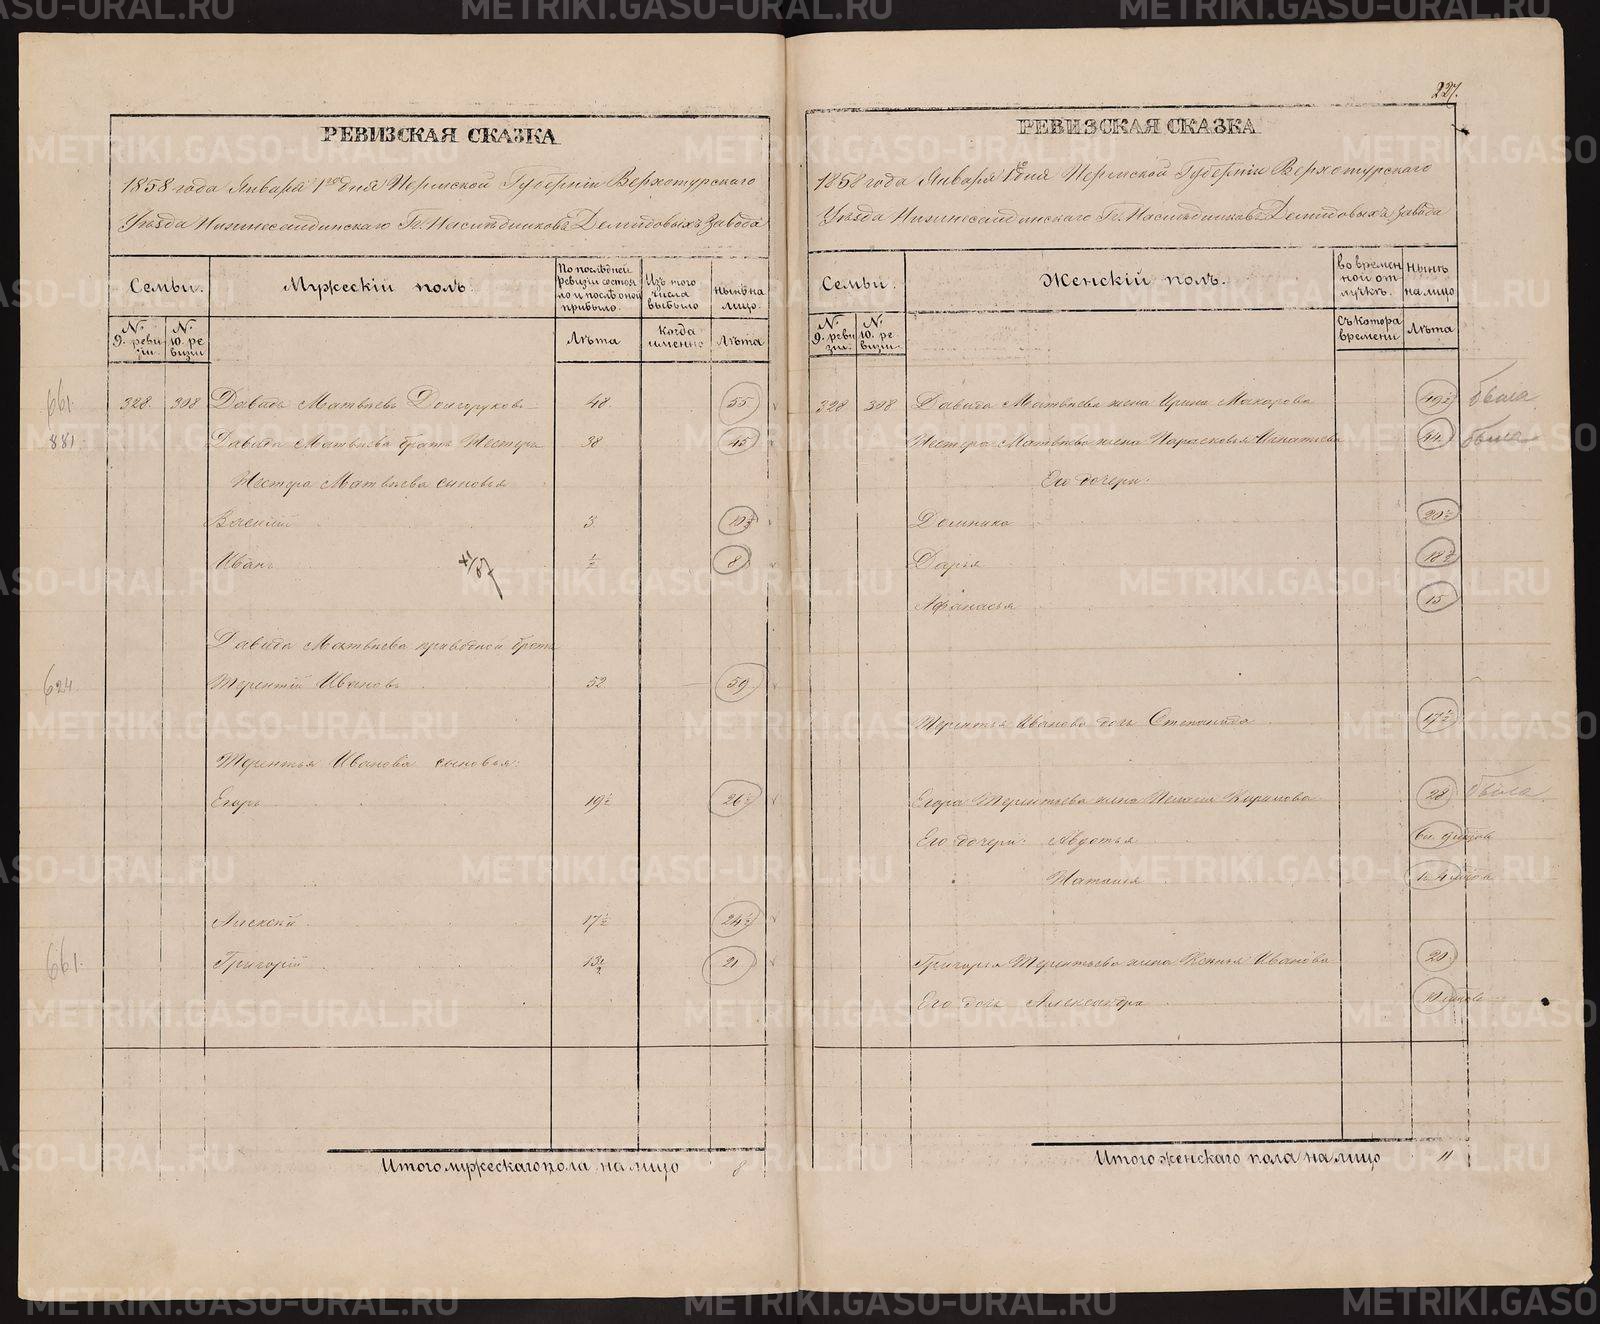 227.
РЕВИЗСКАЯ СКАЗКА
1858 года Января 1го дня Пермской Губерніи Верхотурскаго
Уѣзда Нижнесалдинскаго Гг. Наслѣдниковъ Демидовыхъ Завода
Семьи.
Мужескій полъ.
По послѣдней ревизіи состояло и послѣ оной прибыло.
Изъ того числа выбыло
Нынѣ на лицо
№ 9. ревизіи
№ 10. ревизіи
Лѣта
Когда именно
Лѣта
661. 328. 308 Давидъ Матвѣевъ Долгоруковъ 48 55
881. Давида Матвѣева братъ Нестеръ 38 45
Нестера Матвѣева сыновья
Василій 3 10½
Иванъ ½ 8
Давида Матвѣева приводной братъ
624 Терентій Ивановъ 52 59
Терентья Иванова сыновья:
Егоръ 19½ 26½
Алексѣй 17½ 24½
661. Григорій 13½ 21
Итого мужескаго пола на лицо 8
РЕВИЗСКАЯ СКАЗКА
1858 года Января 1го дня Пермской Губерніи Верхотурскаго
Уѣзда Нижнесалдинскаго Гг. Наслѣдниковъ Демидовыхъ Завода
Семьи.
Женскій полъ.
во временной отлучкѣ.
Нынѣ на лицо
№ 9. ревизіи
№ 10. ревизіи
Съ котора времени
Лѣта
328 308 Давида Матвѣева жена Ирина Макарова 49½ была
Нестера Матвѣева жена Парасковья Игнатьева 44 была
Его дочери:
Домника 20½
Дарья 18½
Афанасья 15
Терентья Иванова дочь Степанида 17½
Егора Терентьева жена Пелагея Карпова 28 была
Его дочери: Авдотья
Наталія
Григорья Терентьева жена Ксенья Иванова 20
Его дочь Александра
Итого женскаго пола на лицо 11
METRIKI.GASO-URAL.RU